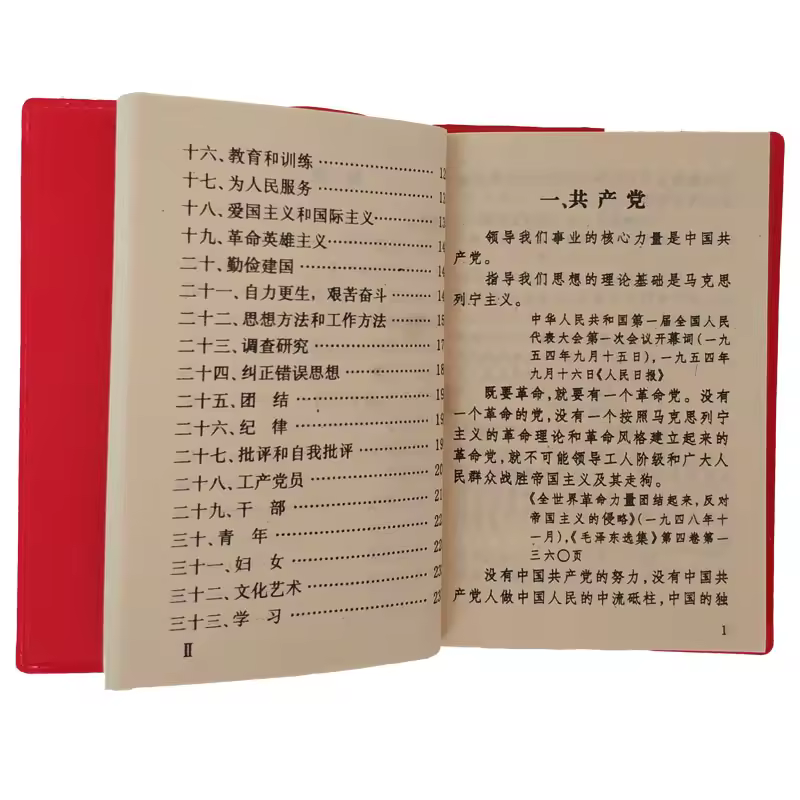 十六、教育和训练 …………… 12
十七、为人民服务 …………… 13
十八、爱国主义和国际主义 …… 13
十九、革命英雄主义 ………… 14
二十、勤俭建国 …………… 14
二十一、自力更生，艰苦奋斗 …… 14
二十二、思想方法和工作方法 …… 15
二十三、调查研究 …………… 17
二十四、纠正错误思想 ………… 18
二十五、团 结 …………… 19
二十六、纪 律 …………… 19
二十七、批评和自我批评 ……… 19
二十八、工产党员 …………… 20
二十九、干 部 …………… 21
三十、青 年 …………… 22
三十一、妇 女 …………… 22
三十二、文化艺术 …………… 23
三十三、学 习 …………… 23
II
一、共产党
领导我们事业的核心力量是中国共
产党。
指导我们思想的理论基础是马克思
列宁主义。
中华人民共和国第一届全国人民
代表大会第一次会议开幕词(一九
五四年九月十五日),一九五四年
九月十六日《人民日报》
既要革命,就要有一个革命党。没有
一个革命的党,没有一个按照马克思列宁
主义的革命理论和革命风格建立起来的
革命党,就不可能领导工人阶级和广大人
民群众战胜帝国主义及其走狗。
《全世界革命力量团结起来,反对
帝国主义的侵略》(一九四八年十
一月),《毛泽东选集》第四卷第一
三六〇页
没有中国共产党的努力,没有中国共
产党人做中国人民的中流砥柱,中国的独
1